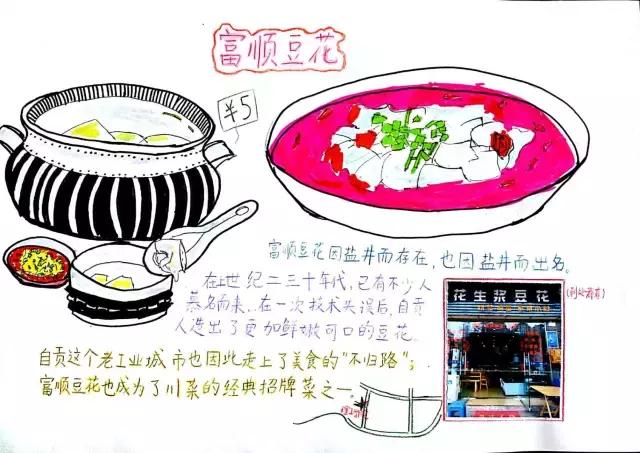 富顺豆花
¥5
富顺豆花因盐井而存在,也因盐井而出名。
在上世纪二三十年代,已有不少人
慕名而来,在一次技术失误后,自贡
人造出了更加鲜嫩可口的豆花。
花生浆豆花
自贡这个老工业城市也因此走上了美食的“不归路”;
富顺豆花也成为了川菜的经典招牌菜之一。